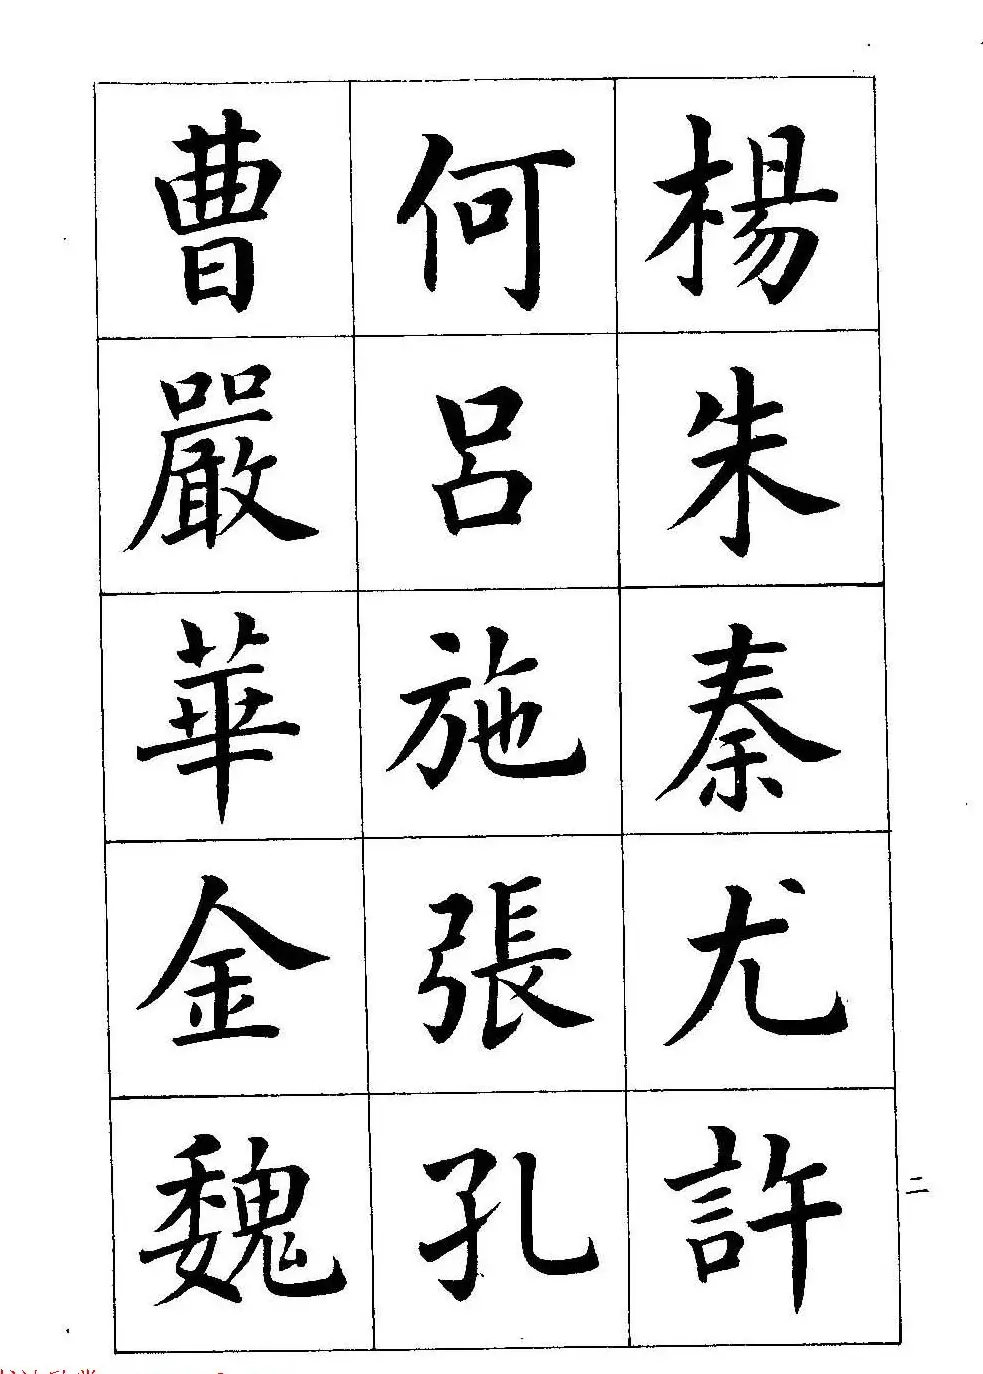 楊朱秦尤許
何呂施張孔
曹嚴華金魏
二